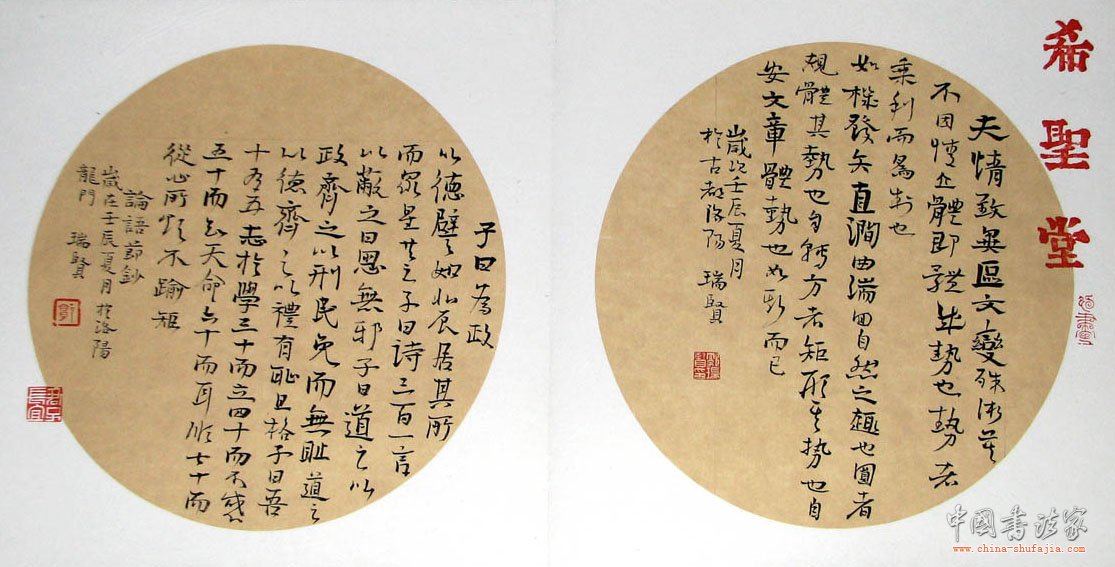 希聖堂
夫情致異區文變殊術莫
不因情立體即體成勢也勢者
乘利而為制也
如機發矢直澗曲湍回自然之趣也圓者
規體其勢也自轉方者矩形其勢也自
安文章體勢也如斯而已
歲次壬辰夏月
於古都洛陽 瑞賢
子曰為政
以德譬如北辰居其所
而眾星共之子曰詩三百一言
以蔽之曰思無邪子曰道之以
政齊之以刑民免而無恥道之
以德齊之以禮有恥且格子曰吾
十有五志於學三十而立四十而不惑
五十而知天命六十而耳順七十而
從心所欲不踰矩
論語節鈔
歲在壬辰夏月於洛陽
龍門 瑞賢
中国书法家
www.china-shufajia.com